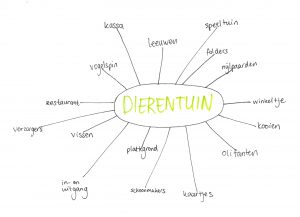 kassa
speeltuin
leeuwen
folders
vogelspin
nijlpaarden
DIERENTUIN
restaurant
winkeltje
verzorgers
vissen
kooien
plattegrond
olifanten
in- en
uitgang
schoonmakers
kaartjes